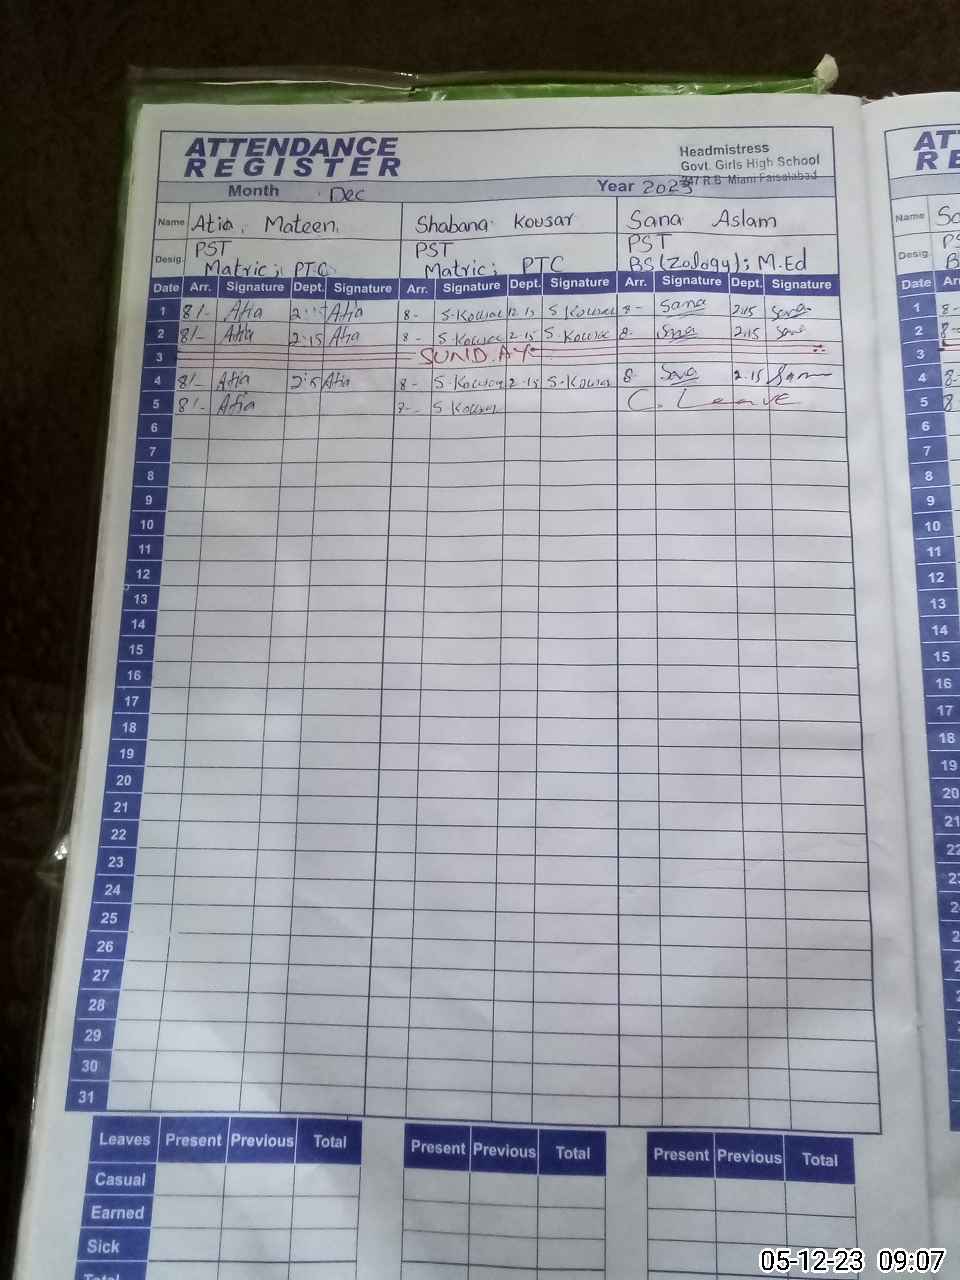 ATTENDANCE
REGISTER
Headmistress
Govt. Girls High School
247 R.B Miani Faisalabad
Month Dec Year 2023
Name Atia Mateen Shabana Kousar Sana Aslam
Desig. PST PST PST
Matric; PTC Matric; PTC BS(Zology); M.Ed
Date Arr. Signature Dept. Signature Arr. Signature Dept. Signature Arr. Signature Dept. Signature
1 8/- Atia Atia 8- S.Kousar S.Kousar 8- Sana 2:15 Sana
2 8/- Atia 2:15 Atia 8- S.Kousar 2-15 S.Kousar 8- Sana 2:15 Sana
3 SUNDAY
4 8/- Atia Atia 8- S.Kousar 2-15 S.Kousar 8- Sana 2-15 Sana
5 8/- Atia S Kousar C. Leave
6
7
8
9
10
11
12
13
14
15
16
17
18
19
20
21
22
23
24
25
26
27
28
29
30
31
Leaves Present Previous Total Present Previous Total Present Previous Total
Casual
Earned
Sick
Total
AT
RE
Name
Desig.
Date
1 8-
2 8-
3
4 8-
5 8
6
7
8
9
10
11
12
13
14
15
16
17
18
19
20
21
22
05-12-23 09:07